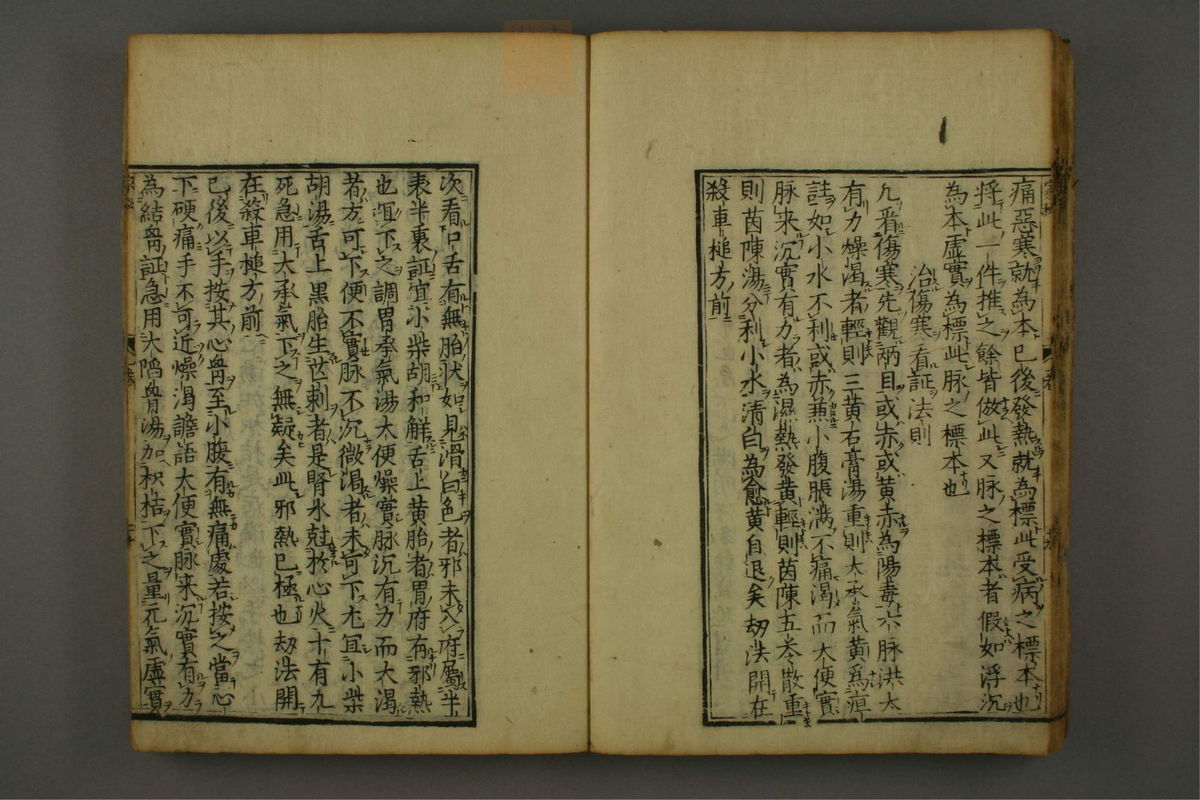 痛惡寒就為本已後發熱就為標此受病之標本也
將此一件推之餘皆倣此又脉之標本者假如浮沉
為本虛實為標此脉之標本也
治傷寒看証法則
凢看傷寒先觀兩目或赤或黄赤為陽毒六脉洪大
有力燥渇者輕則三黄石膏湯重則大承氣黄為疸
証如小水不利或赤兼小腹脹満不痛渇而大便實
脉来沉實有力者為濕熱發黄輕則茵陳五苓散重
則茵陳湯分利小水清白為愈黄自退矣刼法開在
殺車槌方前
次看口舌有無胎状如見滑白色者邪未入府屬半
表半裏証宜小柴胡和觧舌上黄胎者胃府有邪熱
也宜下之調胃承氣湯大便燥實脉沉有力而大渇
者方可下便不實脉不沉微渇者未可下尤宜小柴
胡湯舌上黒胎生芒刺者是腎水尅於心火十有九
死急用大承氣下之無疑矣此邪熱已極也刼法開
在殺車槌方前
已後以手按其心胷至小腹有無痛處若按之當心
下硬痛手不可近燥渇譫語大便實脉来沉實有力
為結胷証急用大陷胷湯加枳桔下之量元氣虛實